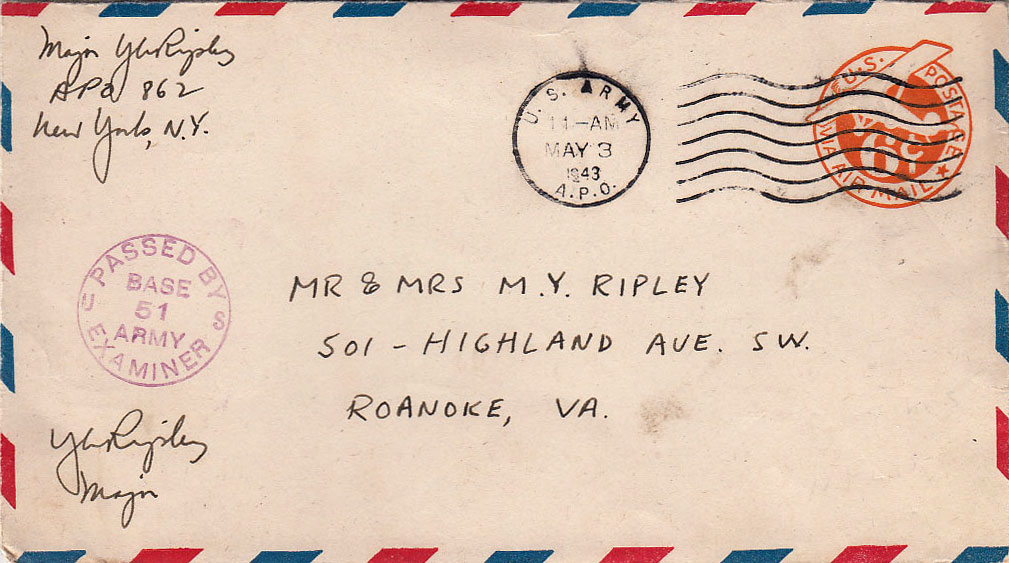 Major YWRipley
APO 862
New York, N.Y.
U.S. ARMY
11-AM
MAY 3
1943
A.P.O.
U.S. POSTAGE
6c
VIA AIR MAIL
PASSED BY
BASE
51
ARMY
U S
EXAMINER
MR & MRS M.Y. RIPLEY
501 - HIGHLAND AVE. SW.
ROANOKE, VA.
Ripley
Major